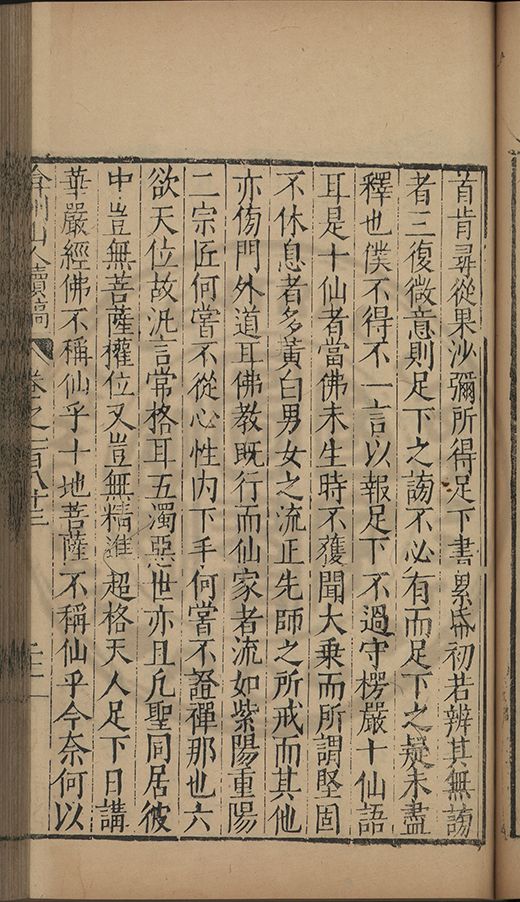 首肯尋從果沙彌所得足下書累帋初若辨其無謗
者三復微意則足下之謗不必有而足下之疑未盡
釋也僕不得不一言以報足下不過守楞嚴十仙語
耳是十仙者當佛未生時不獲聞大乗而所謂堅固
不休息者多黃白男女之流正先師之所戒而其他
亦傍門外道耳佛教既行而仙家者流如紫陽重陽
二宗匠何嘗不從心性内下手何嘗不證禪那也六
欲天位故汎言常格耳五濁惡世亦且凡聖同居彼
中豈無菩薩權位又豈無精進超格天人足下日講
華嚴經佛不稱仙乎十地菩薩不稱仙乎今奈何以
弇州山人續稿 卷之一百八十三